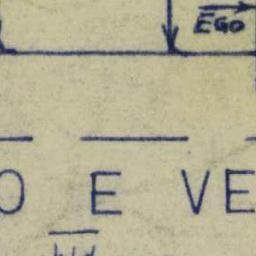 EGO
O E VE